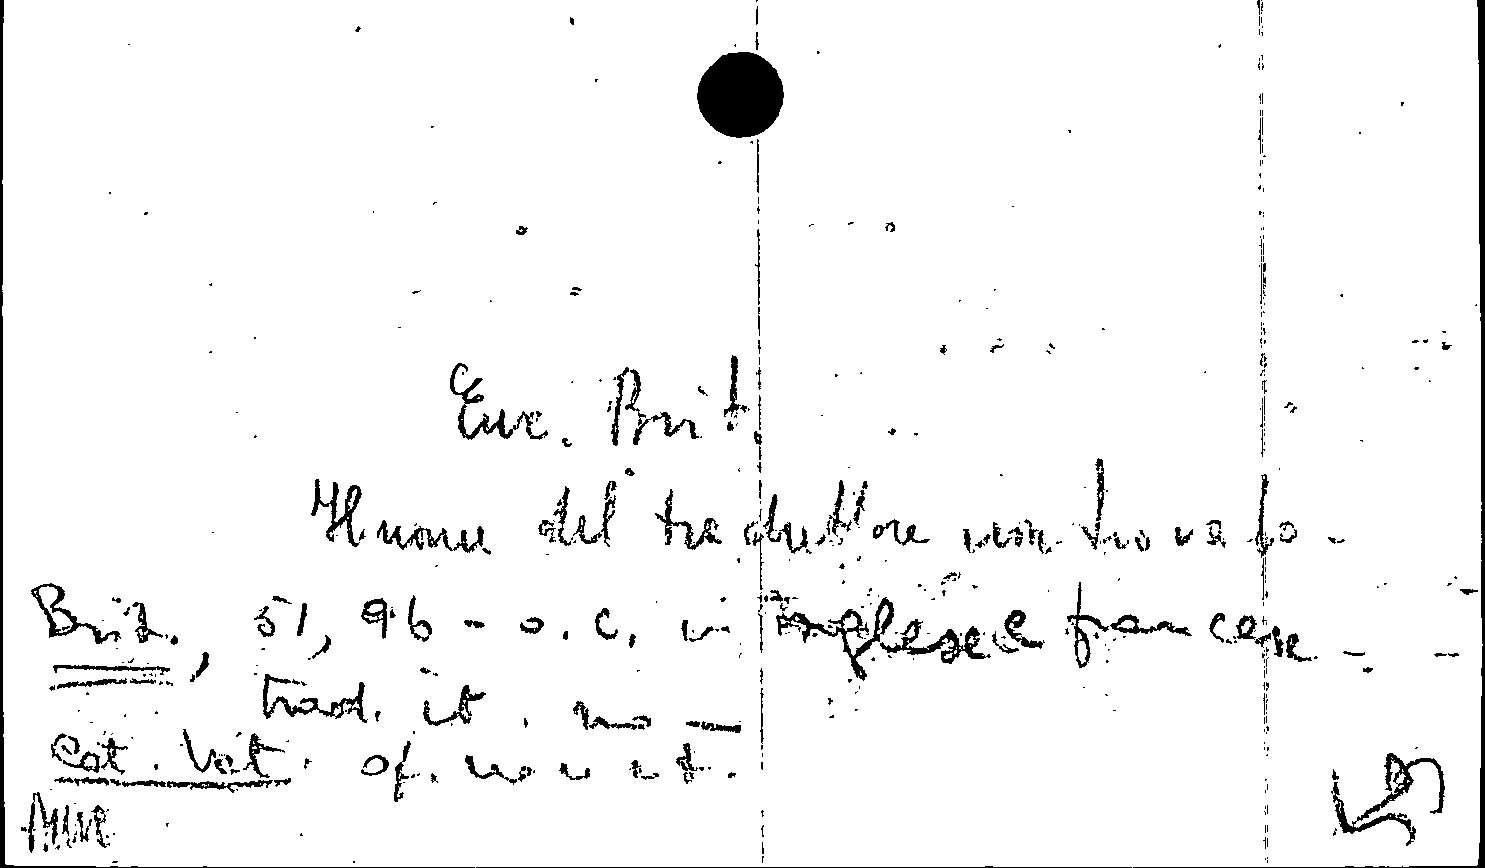 Enc. Brit.
Il nome del traduttore non trovato.
Brit., 51, 96 - o. c. in inglese e francese -
trad. it. no —
Cat. Vat. op. non est.